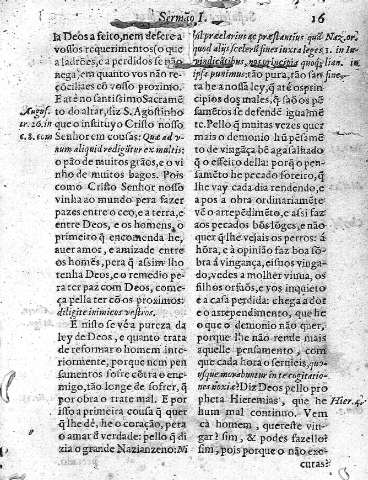 Sermão I. 16
la Deos a feito, nem defere a
vossos requerimentos (o que
a ladrões, e a perdidos se não
nega) em quanto vos não re-
cõciliaes cõ vosso proximo.
E ate no santissimo Sacramẽ
to do altar, diz S. Agostinho
que o instituyo Christo nosso
Senhor em cousas: Quæ ad v-
num aliquid rediguntur ex multis:
o pão de muitos grãos, e o vi-
nho de muitos bagos. Pois
como Cristo Senhor nosso
vinha ao mundo pera fazer
pazes entre o ceo, e a terra, e
entre Deos, e os homens, o
primeiro q̃ encomenda he,
auer amor, e amizade entre
os homẽs, pera q̃ assim lho
tenha Deos, e o remedio pe-
ra ter paz com Deos, come-
ça pella ter cõ os proximos:
diligite inimicos vestros.
E nisto se vè a pureza da
ley de Deos, e quanto trata
de reformar o homem inte-
riormente, porque nem pen-
samentos sofre cõtra o emi-
migo, tão longe de sofrer, q̃
por obra o trate mal. E por
isso a primeira cousa q̃ quer
q̃ lhe dé, he o coração, pera
o amar d verdade: pello q̃ di-
zia o grande Nazianzeno: Ni
August.
tr. 26. in
c. 3. com
hil præclarius ac præstantius quã Naz. or.
quod alij scelerũ fines iuxta leges 3. in Iu-
vindicãtibus, nos principia quoq; lian.
ipsa punimus: tão pura, tão san-
ta he a nossa ley, q̃ atè os prin-
cipios dos males, q̃ saõ os pẽ-
samẽtos se defende igualmẽ-
te. Pello q̃ muitas vezes quer
mais o demonio hũ pẽsamẽ-
to de vingãça bẽ agasalhado
q̃ o effeito della: por q̃ o pen-
samẽto he pecado foreiro, q̃
lhe vay cada dia rendendo, e
a pos a obra ordinariamẽte
vẽ o arrepẽdimẽto, e assi faz
aos pecados bõs lóges, e não
quer q̃ lhe vejais os perros: á
hõra, e á opinião faz boa sõ-
bra á vingança, eis nos vinga-
do, vedes a molher viuua, os
filhos orfaõs, e vos inquieto
e a casa perdida: chega a dor
e o arrependimento, que he
que o demonio não quer,
porque lhe não rende mais
aquelle pensamento, com
que cada hora o servieis, quo-
vsque morabuntur in te cogitatio-
nes noxiæ? Diz Deos pello pro
pheta Hieremias, que he Hier. 4.
hum mal continuo. Vem
cá homem, quereste vin-
gar? sim, & podes fazello?
sim, pois porque o não exe-
cutas?